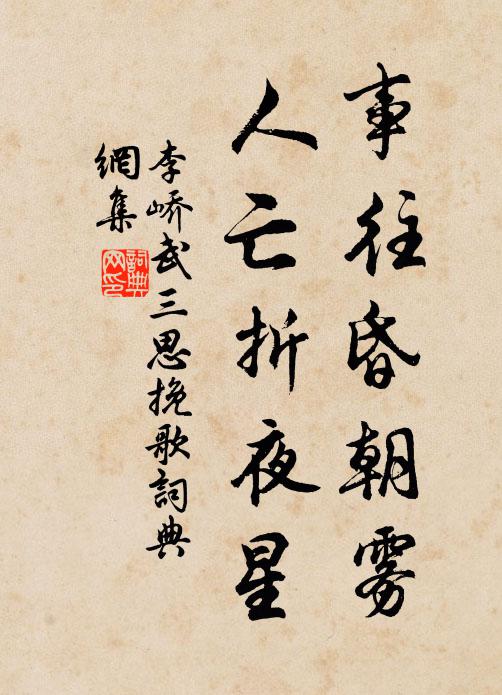 事往昏朝雾
人亡折夜星
李峤武三思挽歌詞典
網集
詞典
网印